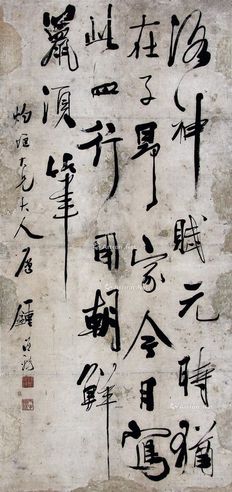 洛神賦元時猶
在子昂家今月寫
此四行用朝鮮
鬣須筆
大兄大人屬